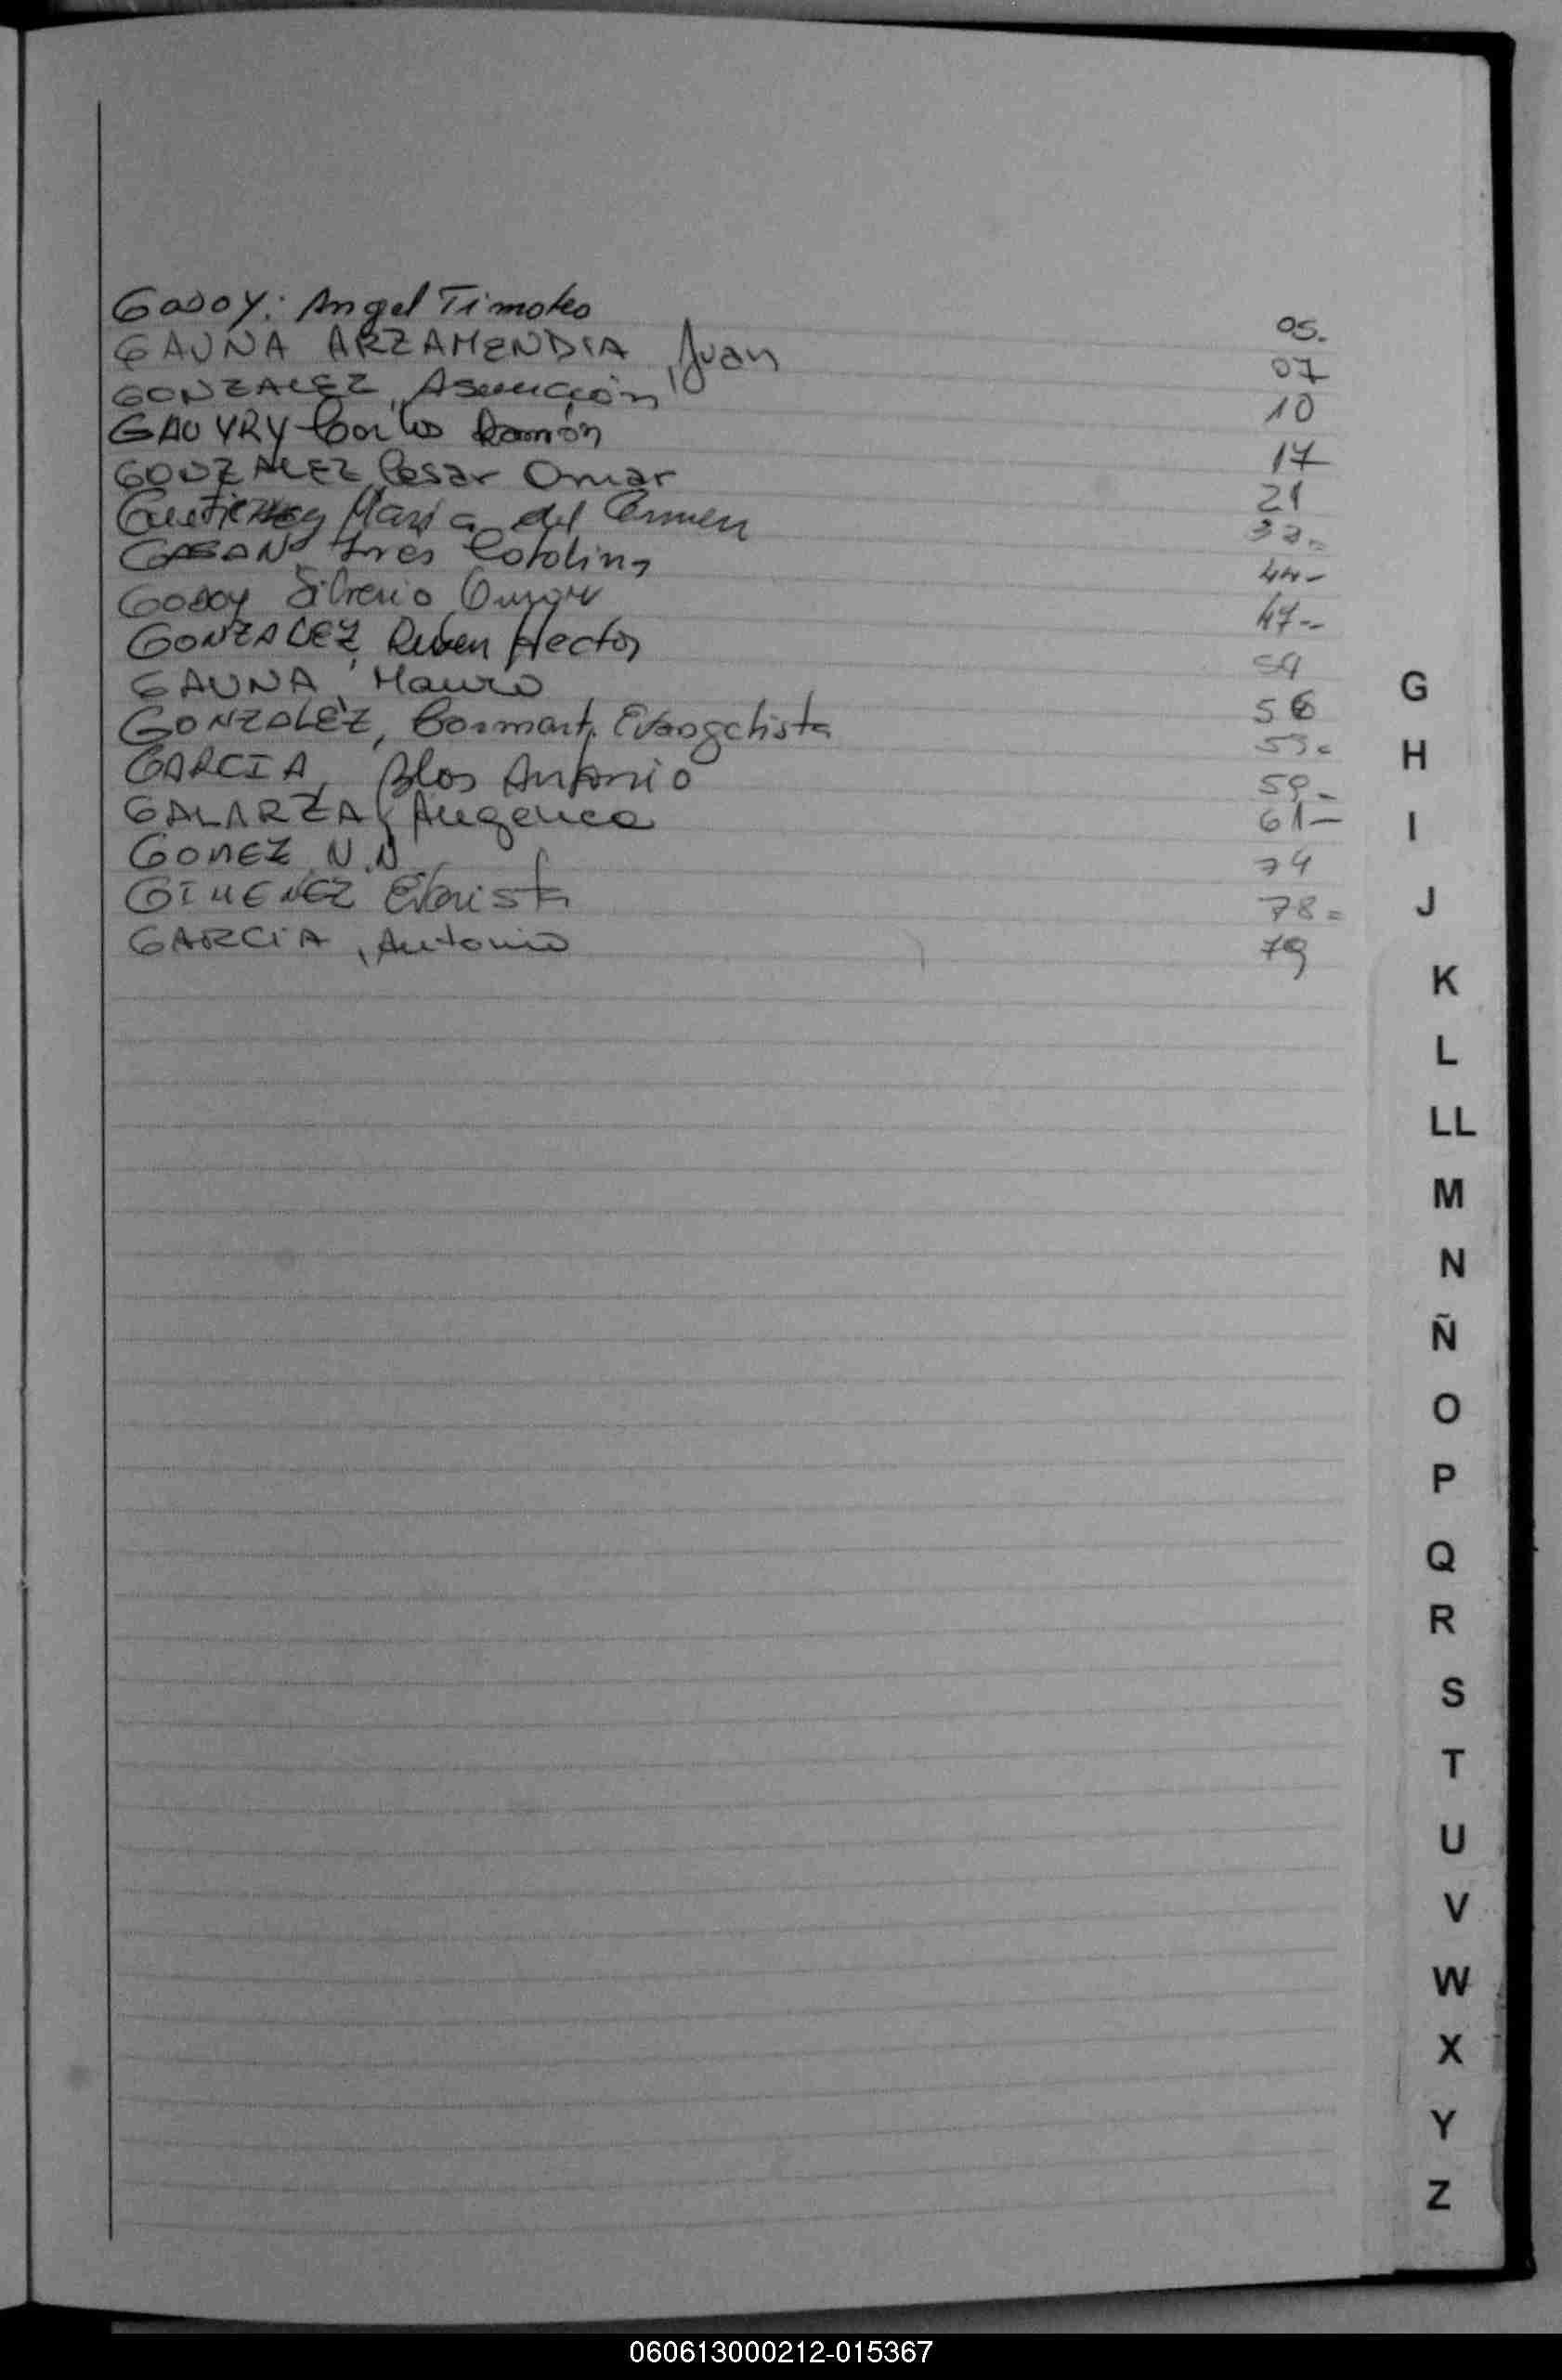 GODOY: Angel Timoteo 05.
GAUNA ARZAMENDIA, Juan 07
GONZALEZ, Asunción 10
GAUYRY Carlos Ramón 17
GONZALEZ, Cesar Omar 21
Gutierrez Maria del Carmen
Ines Catalina 44-
GODOY Silverio 47-
GONZALEZ, Ruben Hector 54
GAUNA, Mauro 56
GONZALEZ, Evangelista
GARCIA, Blas Antonio 59-
GALARZA, Angelica 61-
GOMEZ N.N 74
GIMENEZ Evarista 78=
GARCIA, Antonio 79
G
H
I
J
K
L
LL
M
N
Ñ
O
P
Q
R
S
T
U
V
W
X
Y
Z
060613000212-015367